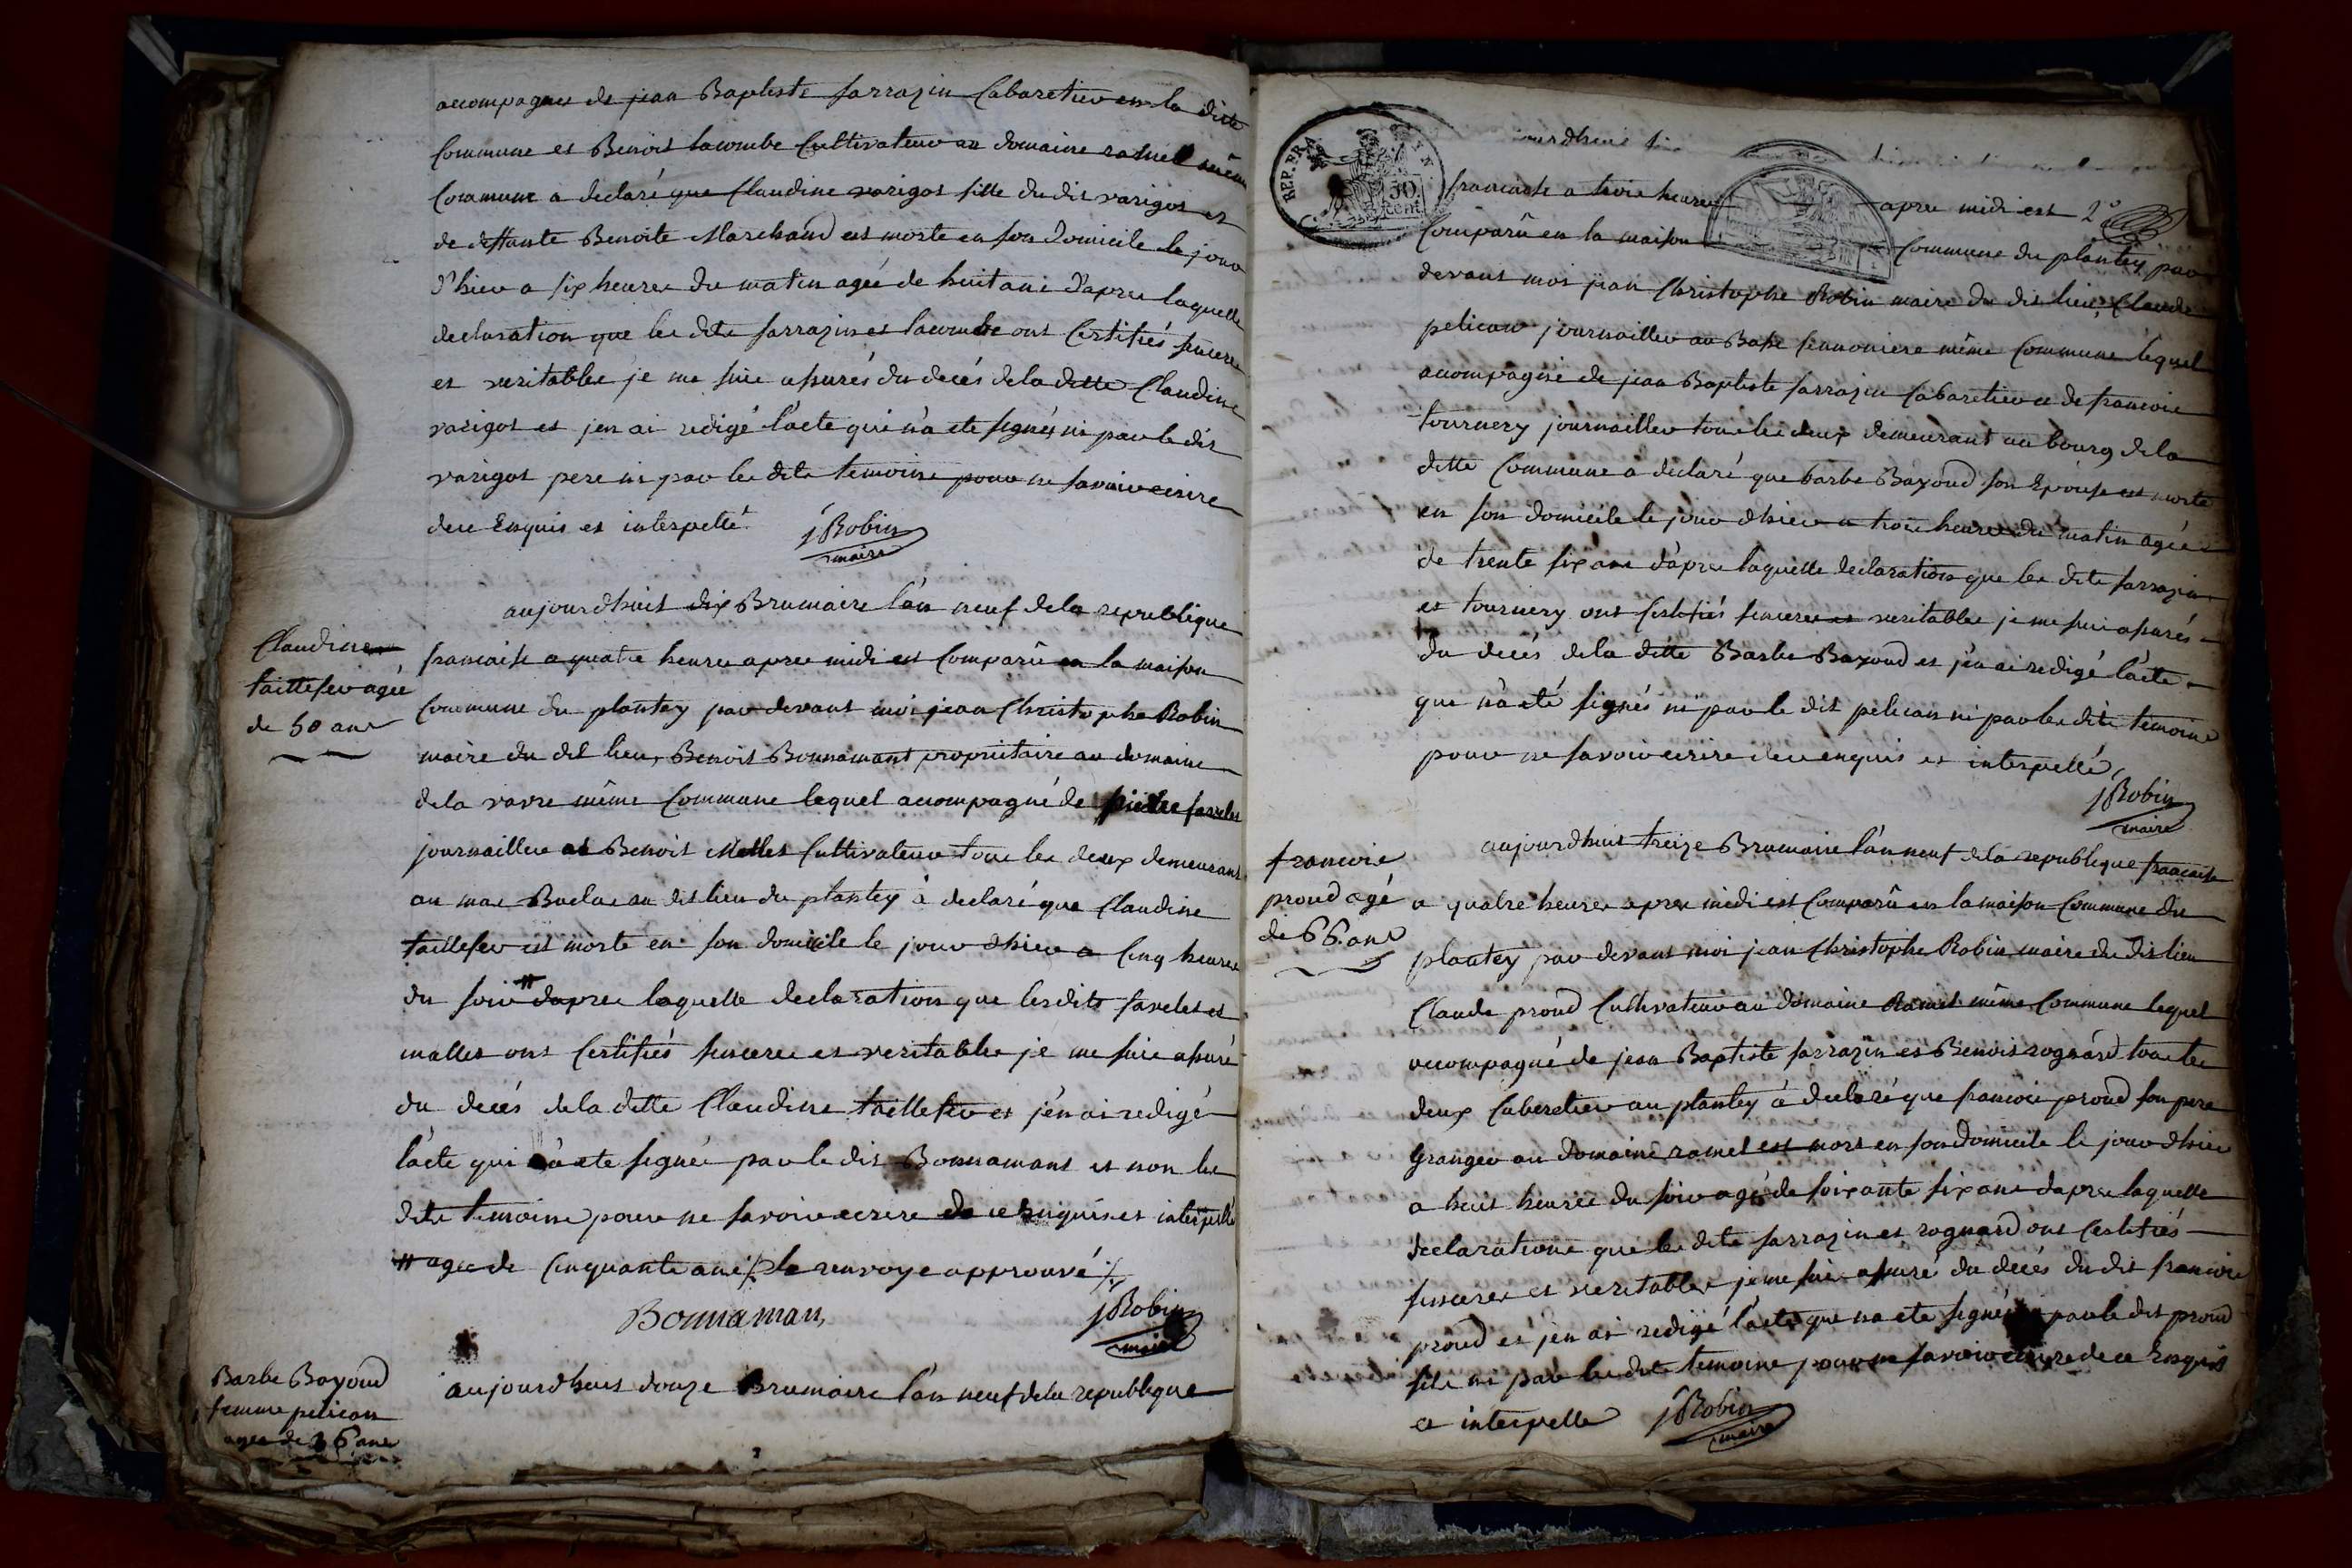 accompagné de jean Baptiste sarrazin Cabaretier en la ditte
Commune et Benoit lacombe Cultivateur au domaine ramel même
Commune a declaré que Claudine varigot fille du dit varigot et
de deffunte Benoite Marchand est morte en son domicile le jour
d'hier a six heures du matin agée de huit ans d'apres laquelle
declaration que les dits sarrazin et lacombe ont Certifiés sincere
et veritable je me suis assurés du decés dela ditte Claudine
varigot et j'en ai redigé l'acte qui n'a ete signés ni par le dit
varigot pere ni par les dits temoins pour ne savoir ecrire
dece Enquis et interpellé. JRobin
maire
Claudine
taillefer agée
de 50 ans
aujourdhuit dix Brumaire l'an neuf dela republique
francaise a quatre heures apres midi est Comparû en la maison
Commune du plantey par devant moi jean Christophe Robin
maire du dit lieu, Benoit Bonnamant propriétaire au domaine
dela varre même Commune lequel accompagné de
journaillier et Benoit Mallet Cultivateur tous les deux demeurant
au mas au dit lieu du plantey à declaré que Claudine
taillefer est morte en son domicile le jour dhier a Cinq heures
du soir # dapres laquelle declaration que lesdits favelet et
mallet ont Certifiés sinceres et veritables je me suis assuré
du decés dela ditte Claudine taillefer et j'en ai redigé
l'acte qui a ete signés par le dit Bonnamant et non les
dits temoins pour ne savoir ecrire de ce Enquis et interpellé
# agée de Cinquante ans ⁒ le renvoye approuvé ⁒
Bonnaman JRobin
maire
Barbe Bayoud
femme pelican
agée de 36 ans
aujourdhuit douze Brumaire l'an neuf dela republique
REP. FRA
50
cent
francaise a trois heures apres midi est 2º
Comparû en la maison Commune du plantey par
devant moi jean Christophe Robin maire du dit lieu, Claude
pelican journaillier au Basse même Commune lequel
accompagné de jean Baptiste sarrazin Cabaretier et de francois
tournery journaillier tous les deux demeurant au bourg dela
ditte Commune a declaré que barbe Bayoud son Epouse est morte
en son domicile le jour dhier a trois heures du matin agée
de trente six ans d'apres laquelle declaration que les dits sarrazin
et tournery ont Certifiés sinceres et veritables je me suis assurés
du decés dela ditte Barbe Bayoud et j'en ai redigé l'acte
que n'a eté signés ni par le dit pelican ni par les dits temoins
pour ne savoir ecrire dece enquis et interpellé,
JRobin
maire
francois
proud agé
de 66 ans
aujourdhuit treize Brumaire l'an neuf dela republique francaise
a quatre heures apres midi est Comparû en la maison Commune du
plantey par devant moi jean Christophe Robin maire du dit lieu
Claude proud Cultivateur au domaine Ramel même Commune lequel
accompagné de jean Baptiste sarrazin et Benoit rognard tous les
deux Cabaretier au plantey à declaré que francois proud son pere
Granger au domaine ramel est mort en son domicile le jour dhier
a huit heures du soir agé de soixante six ans dapres laquelle
declarations que les dits sarrazin et rognard ont Certifiés
sinceres et veritables je me suis assuré du decés du dit francois
proud et j'en ai redigé l'acte que na eté signés ni par le dit proud
fils ni par les dits temoins pour ne savoir ecrire de ce Enquis
et interpellé JRobin
maire